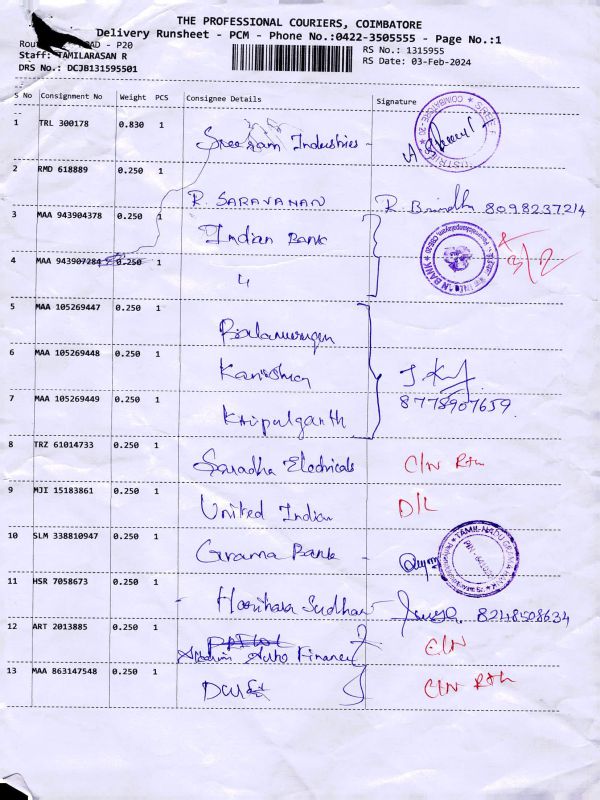 THE PROFESSIONAL COURIERS, COIMBATORE
Delivery Runsheet - PCM - Phone No.:0422-3505555 - Page No.:1
- P20
Staff: TAMILARASAN R
DRS No.: DCJB131595501
RS No.: 1315955
RS Date: 03-Feb-2024
S No Consignment No Weight PCS Consignee Details Signature
1 TRL 300178 0.830 1 Sreeram Industries -
2 RMD 618889 0.250 1 R. SARAVANAN R. Brindha 8098237214
3 MAA 943904378 0.250 1 Indian Bank
4 MAA 943907284 0.250 1 "
3/2
5 MAA 105269447 0.250 1 Balamurugan
6 MAA 105269448 0.250 1
7 MAA 105269449 0.250 1 8778907659
8 TRZ 61014733 0.250 1 Saradha Electricals C/N
9 MJI 15183861 0.250 1 United Indian D/L
10 SLM 338810947 0.250 1 Grama Bank -
11 HSR 7058673 0.250 1 - 8248508634
12 ART 2013885 0.250 1 Auto Finance C/N
13 MAA 863147548 0.250 1 C/N